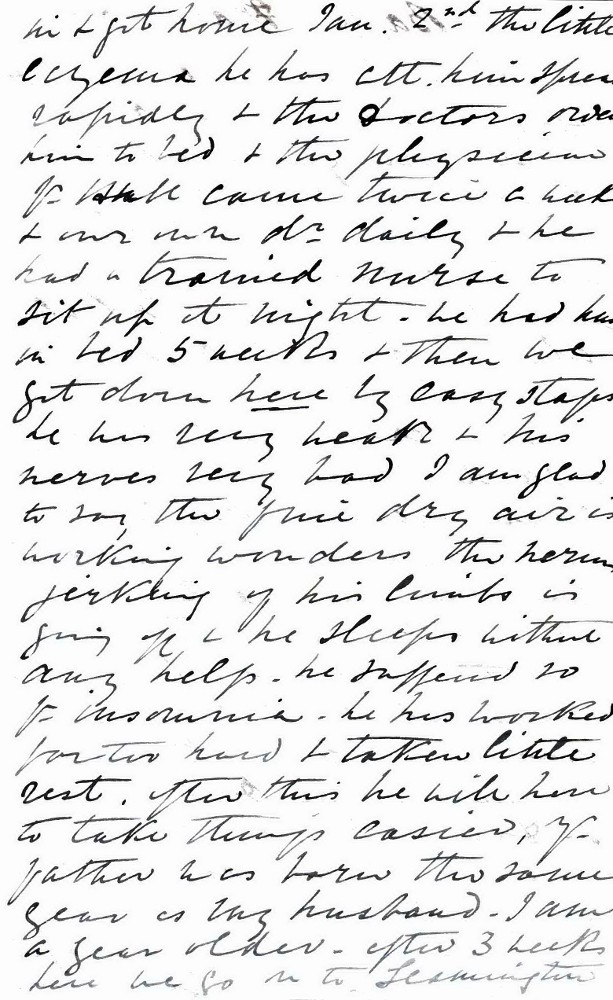 in & got home Jan. 2nd the little
Eczema he has att. him sprea
rapidly & the doctors orde
him to bed & the physician
fr Hull came twice a week
& our own dr daily & he
had a trained nurse to
sit up at night - he had
in bed 5 weeks & then we
got down here by easy stages
he was very weak & his
nerves very bad I am glad
to say the fine dry air is
working wonders the nervou
jerking of his limbs is
going off & he sleeps without
any help. he suffered so
fr insomnia - he has worked
far too hard & taken little
rest. after this he will have
to take things easier, yr
father was born the same
year as my husband - I am
a year older - after 3 weeks
here we go on to Leamington